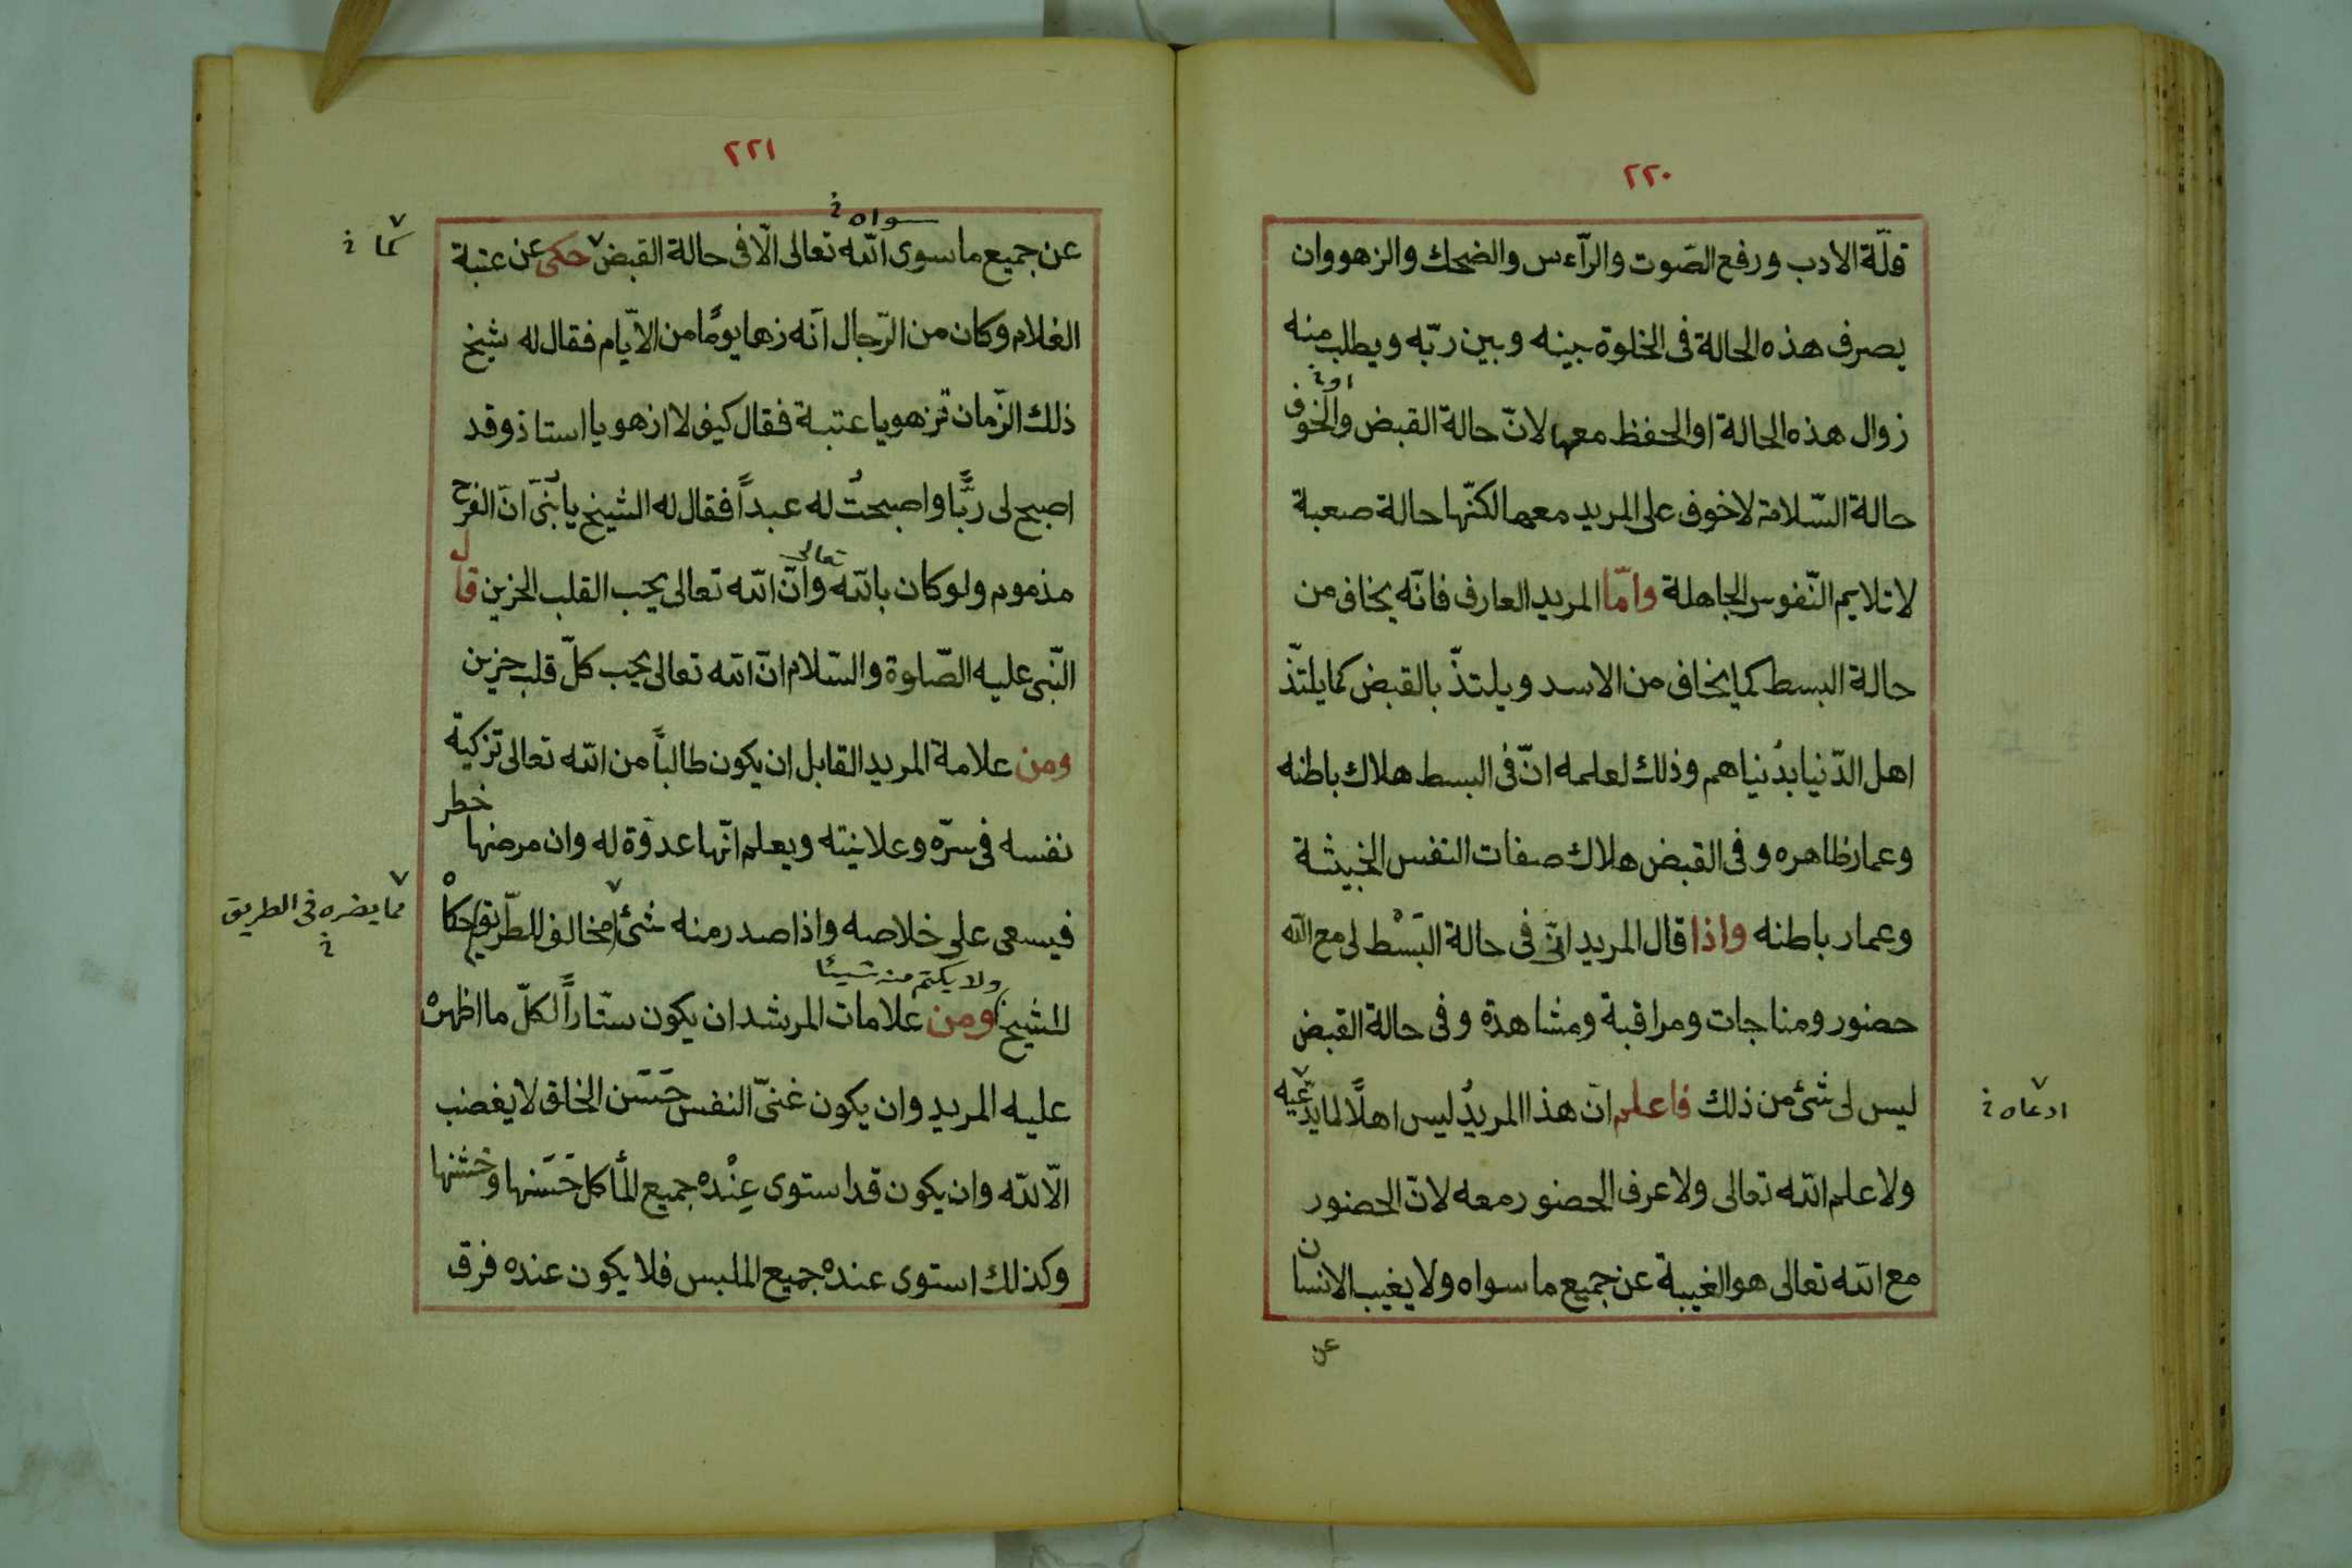 ٢٢٠
قلّة الادب ورفع الصّوت والرّاءس والضحك والزهو وان
يصرف هذه الحالة فى الخلوة بينه وبين ربّه ويطلب منه
او خ
زوال هذه الحالة او الحفظ معها لانّ حالة القبض والخوف
حالة السّلامة لا خوف على المريد معها لكنّها حالة صعبة
لا تلايم النّفوس الجاهلة وامّا المريد العارف فانّه يخاف من
حالة البسط كما يخاف من الاسد ويلتذّ بالقبض كما يلتذّ
اهل الدّنيا بدُنياهم وذلك لعلمه انّ فى البسط هلاك باطنه
وعمار ظاهره وفى القبض هلاك صفات النفس الخبيثة
وعمار باطنه واذا قال المريد انّى فى حالة البَسْط لى مع الله
حضور ومناجات ومراقبة ومشاهدة وفى حالة القبض
ليس لى شئ من ذلك فاعلم انّ هذا المريدُ ليس اهلًا لما يدّعيه
ادعاه خ
ولا علم الله تعالى ولا عرف الحضور معه لانّ الحضور
مع الله تعالى هو الغيبة عن جميع ما سواه ولا يغيب الانسان
عن
٢٢١
سواه خ
عن جميع ما سوى الله تعالى الّا فى حالة القبض حكى عن عتبة
كما خ
الغلام وكان من الرّجال انّه زها يومًا من الايّام فقال له شيخ
ذلك الزّمان تزهو يا عتبة فقال كيف لا ازهو يا استاذ وقد
اصبح لى ربًّا واصبحتُ له عبداً فقال له الشيخ يا بُنىّ انّ الفرح
تعالى
مذموم ولو كان بالله وانّ الله تعالى يحب القلب الحزين قال
النّبى عليه الصّلوة والسّلام انّ الله تعالى يحب كلّ قلب حزين
ومن علامة المريد القابل ان يكون طالباً من الله تعالى تزكية
نفسه فى سرّه وعلانيته ويعلم انّها عدوّة له وان مرضها خطر
فيسعى على خلاصه واذا صدر منه شئ مخالف للطّريق حكاهْ
مما يضره فى الطريق خ
ولا يكتم منه شيئا
للشيخ ومن علامات المرشد ان يكون ستّاراً لكلّ ما اظهرهْ
عليه المريد وان يكون غنىّ النفس حَسَن الخلق لا يغضب
الّا لله وان يكون قد استوى عِنْده جميع المأكل حَسَنها وخشنها
وكذلك استوى عنده جميع الملبس فلا يكون عنده فرق